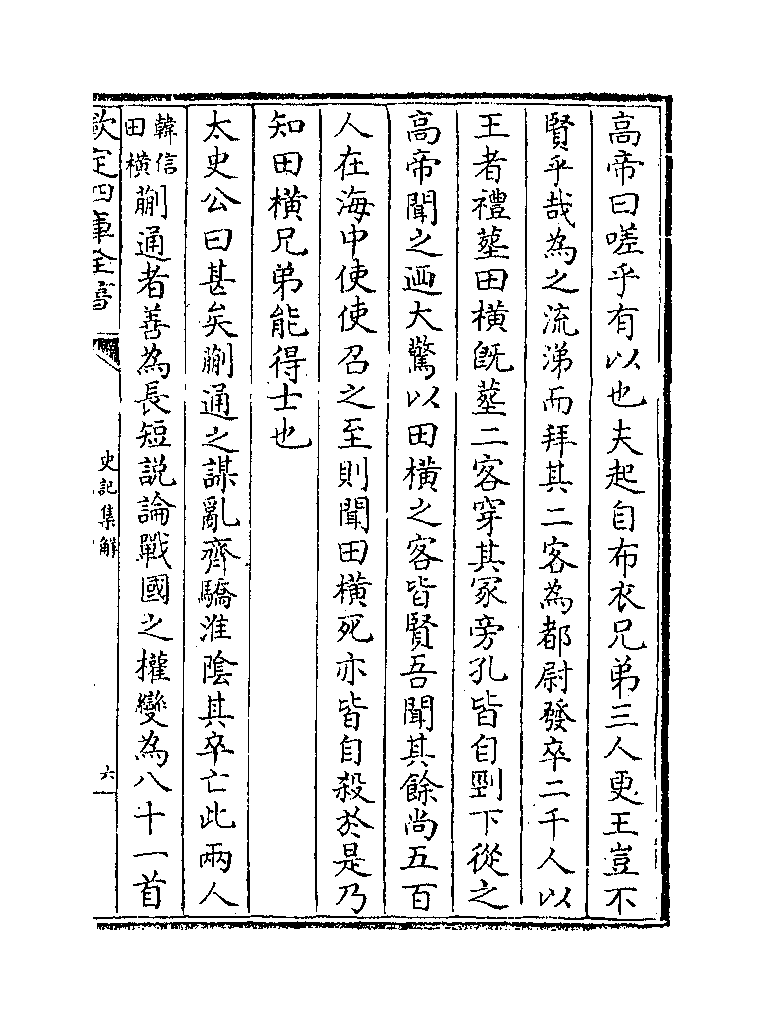 高帝曰嗟乎有以也夫起自布衣兄弟三人更王豈不
賢乎哉為之流涕而拜其二客為都尉發卒二千人以
王者禮塟田橫既塟二客穿其冢旁孔皆自剄下從之
高帝聞之迺大驚以田橫之客皆賢吾聞其餘尚五百
人在海中使使召之至則聞田橫死亦皆自殺於是乃
知田橫兄弟能得士也
太史公曰甚矣蒯通之謀亂齊驕淮陰其卒亡此兩人
韓信田橫蒯通者善為長短説論戰國之權變為八十一首
欽定四庫全書
史記集解
六